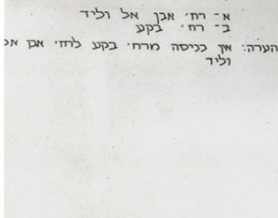 א- רח' אבן אל וליד
ב- רח' בקע
הערה: אין כניסה מרח' בקע לרח' אבן אל
וליד